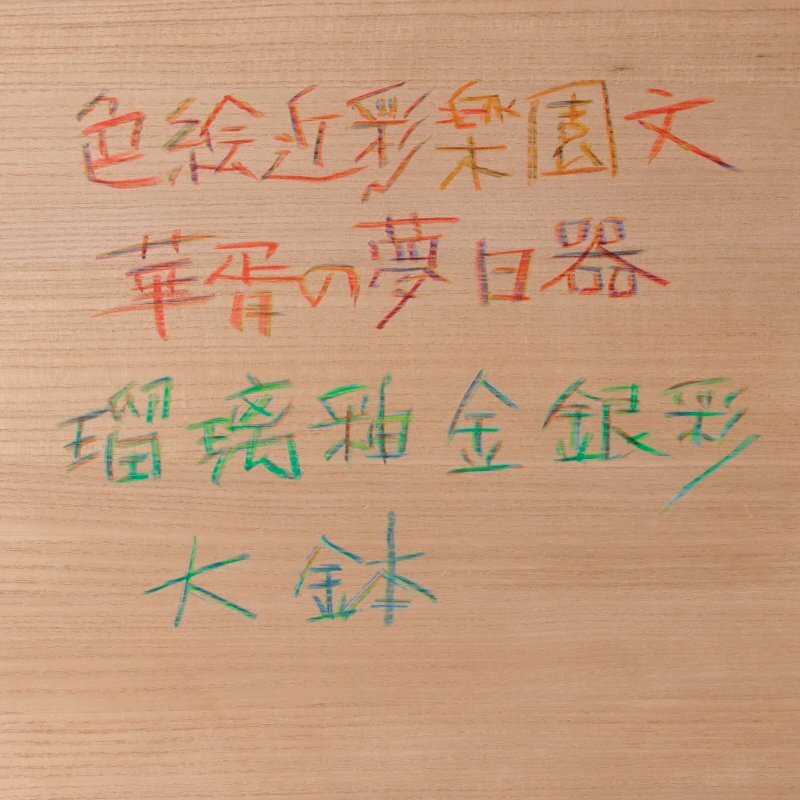 色絵近彩楽園文
華胥の夢日器
瑠璃釉金銀彩
大鉢